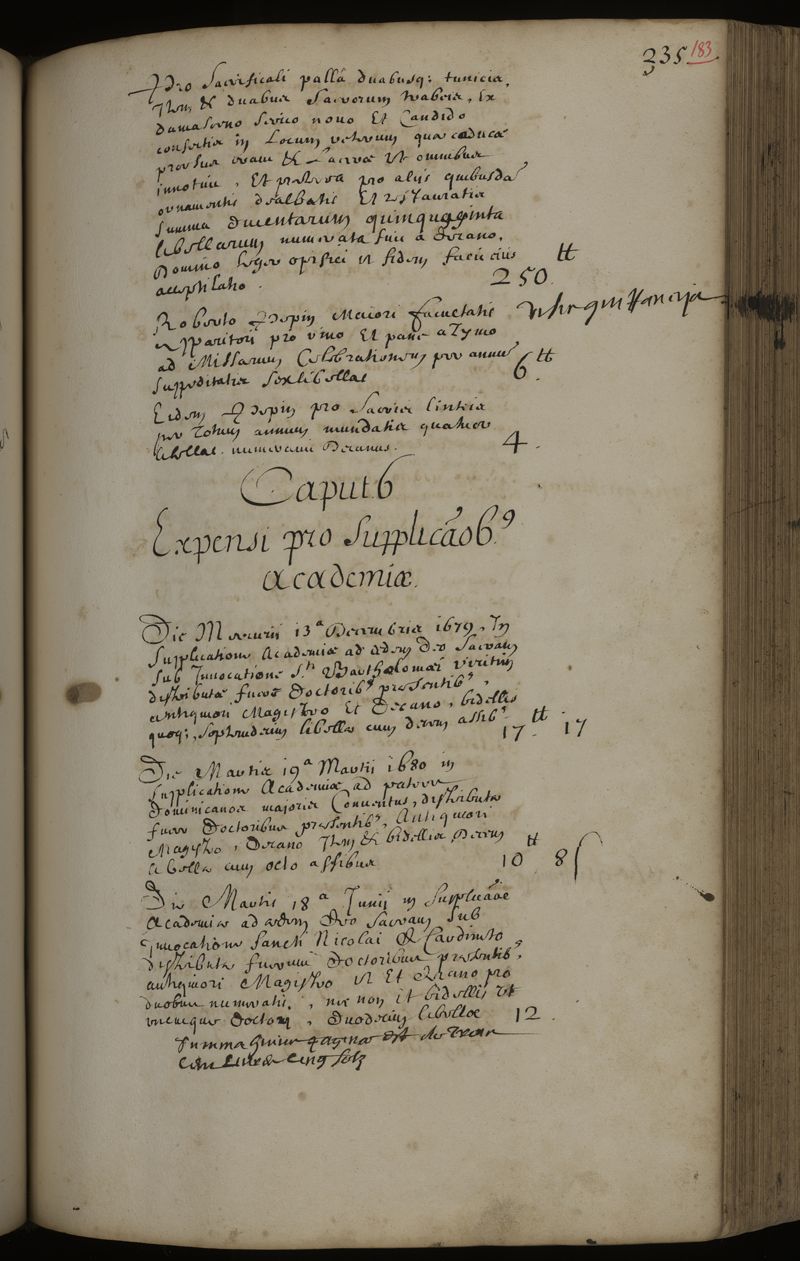 335 183
Pro Sacrificali pallâ duabusq; tunicis,
Item & duabus Sacrorum trabeis, ex
damasceno serico novo Et Candido
confectis in Locum veterum quæ caducæ
prorsus erant & laceræ Ut omnibus
innotuit, Et præterea pro alijs quibusdā
ornamentis dealbatis Et restauratis
summa ducentarum quinquaginta
libellarum numerata fuit a Decano,
Domino Leger opifici Ut fidem facit eius
acceptilatio. 250. ₶
Roberto Crepin Maiori facultatis
apparitori pro vino Et pane azymo
ad Missarum Celebrationem per annū
suppeditatis sex libellas 6 ₶.
Eidem Crepin pro Sacris linteis
per totum annum mundatis quatuor
libellas numeravit Decanus. 4.
Caput 6
Expensi pro Supplicãoib⁹
academiæ.
Die Mercurij 13ª Decembris 1679, In
Supplicatione Academiæ ad ædem Deo Sacram
sub Invocatione Sti Bartholomæi veritim
distributæ fuere Doctorib⁹ præsentib⁹,
antiquiori Magistro Et Decano, bidellis
quoq;, septemdecim libellæ cum decem assib⁹ 17 ₶ 17
Die Martis 19ª Martij 1680 in
supplicatione Academiæ ad patres
Dominicanos majoris Conventus, distributæ
fuere Doctoribus præsentib⁹, Antiquiori
Magistro, Decano Item & bidellis Decem
libellæ cum octo assibus 10 ₶ 8 ſ
Die Martis 18ª Junij in Supplicãoe
Academiæ ad ædem Deo Sacram sub
Invocatione Sancti Nicolai De Cardineto,
distributæ fuerunt Doctoribus præsentib⁹,
antiquiori Magistro Ut Et Decano pro
duobus numeratis, nec non Et bidellis Ut
unicuique Doctori, Duodecim libellæ 12.
Summa huius paginæ est de trois
Cent Livres Cinq solz